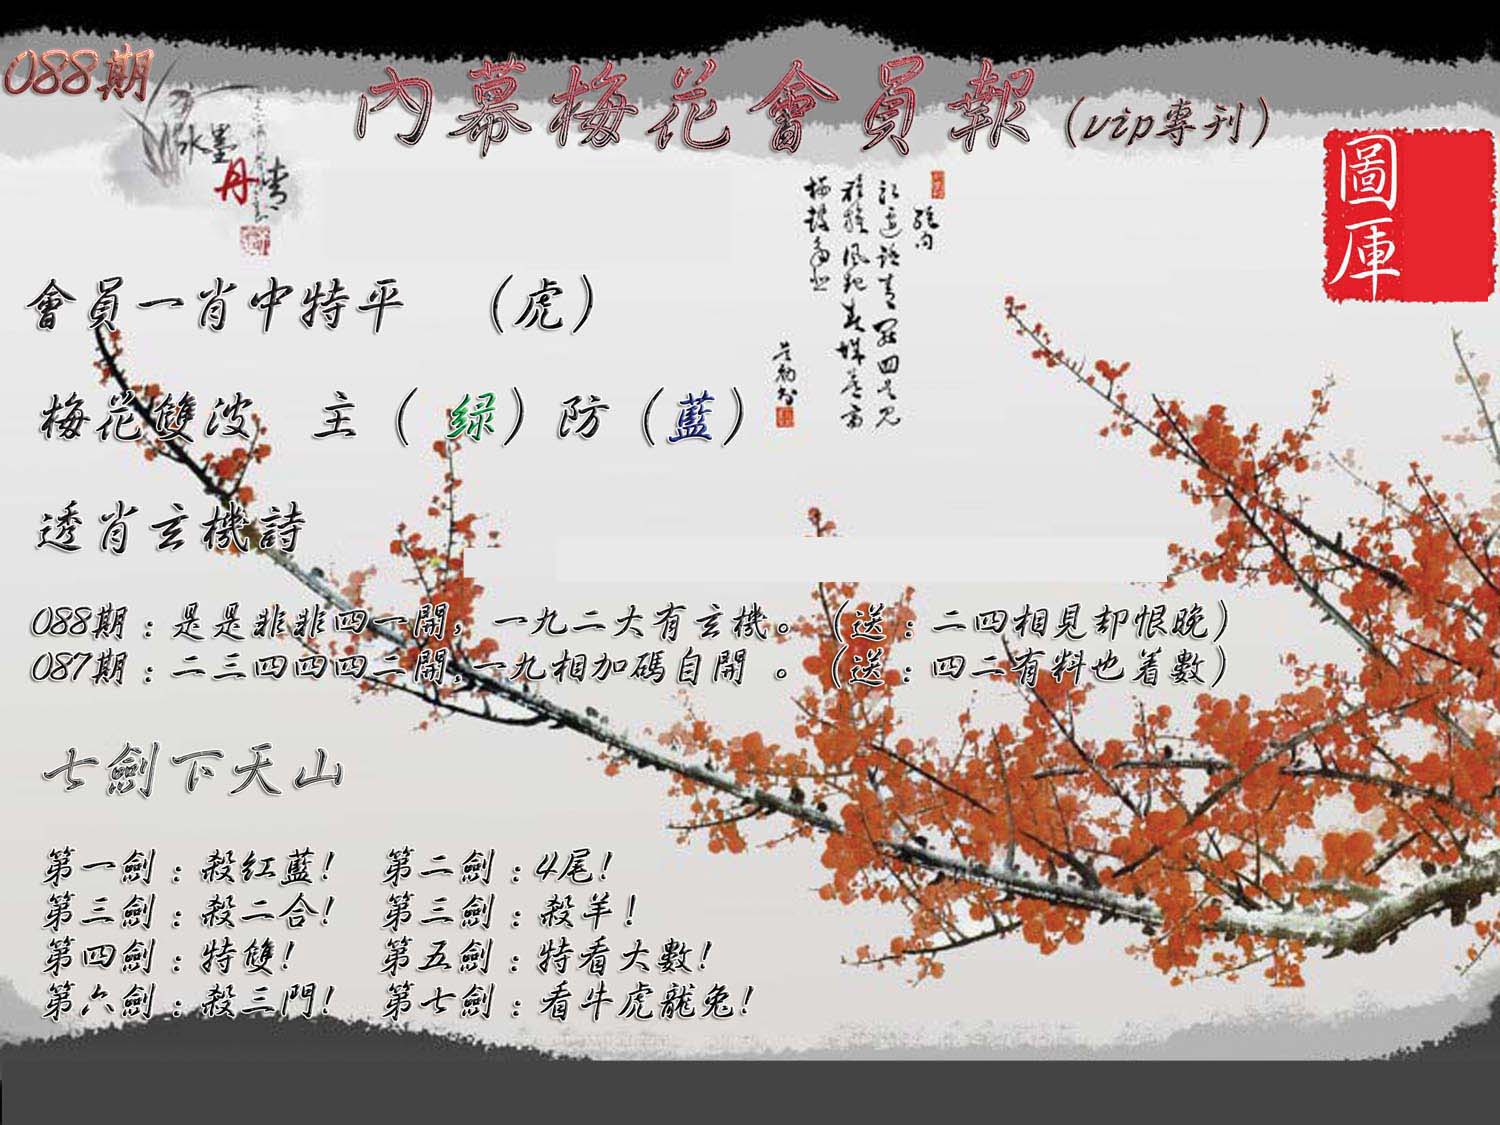 088期
內幕梅花會員報（vip專刊）
水墨
丹青
圖庫
會員一肖中特平　（虎）
梅花雙波　主（ 绿）防（藍）
透肖玄機詩
088期：是是非非四一開，一九二大有玄機。（送：二四相見却恨晚）
087期：二三四四四二開,一九相加碼自開 。（送：四二有料也着數）
七劍下天山
第一劍：殺红藍!　第二劍：4尾!
第三劍：殺二合!　第三劍：殺羊!
第四劍：特雙!　第五劍：特看大數!
第六劍：殺三門!　第七劍：看牛虎龍兔!